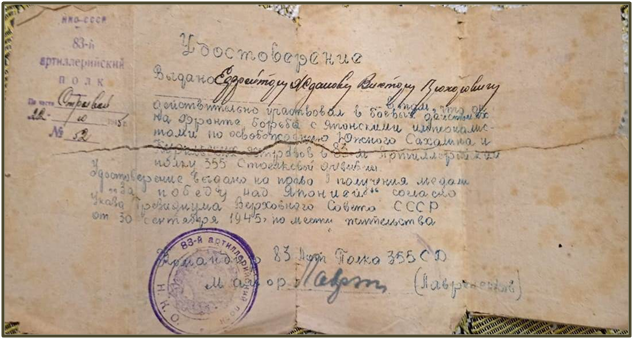 НКО СССР
83-й
артиллерийский
ПОЛК
По части Строевой
22- 10 1945 г.
№ 52
Удостоверение
Выдано Ефрейтору Жданову Виктору
в том, что он
действительно участвовал в боевых действиях
на фронте борьбы с японскими империалис-
тами по освобождению Южного Сахалина и
Курильских островов в 83-м Артиллерийском
полку 355 Стрелковой дивизии
Удостоверение выдано на право получения медали
"За победу над Японией" согласно
Указа Президиума Верховного Совета СССР
от 30 сентября 1945, по месту жительства
Командир 83 Арт Полка 355 СД
Майор
83-й артиллерийский полк
Н.К.О.